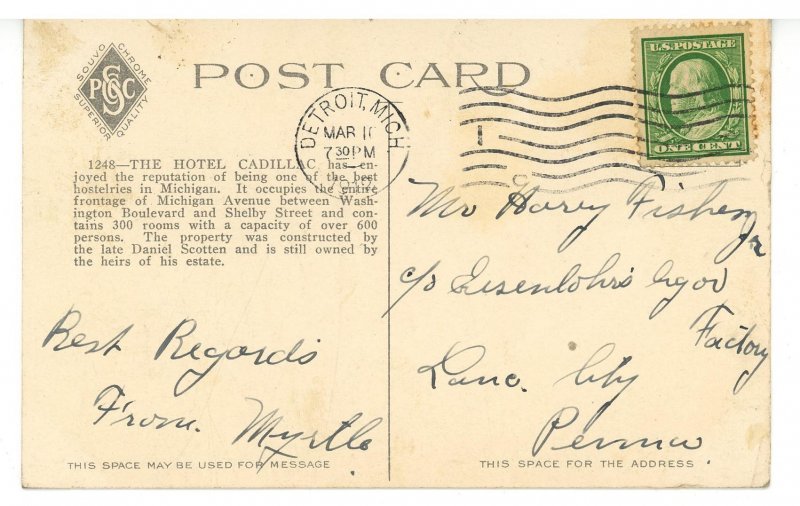 SOUVO CHROME
PSCC
SUPERIOR QUALITY
POST CARD
U.S. POSTAGE
ONE CENT
DETROIT, MICH
MAR 10
7 30 PM
1
1248—THE HOTEL CADILLAC has en-
joyed the reputation of being one of the best
hostelries in Michigan. It occupies the entire
frontage of Michigan Avenue between Wash-
ington Boulevard and Shelby Street and con-
tains 300 rooms with a capacity of over 600
persons. The property was constructed by
the late Daniel Scotten and is still owned by
the heirs of his estate.
Best Regards
From Myrtle
THIS SPACE MAY BE USED FOR MESSAGE
Mr Harry Fisher Jr
c/o Eisenlohr's Cigar
Factory
Lanc. City
Penna.
THIS SPACE FOR THE ADDRESS